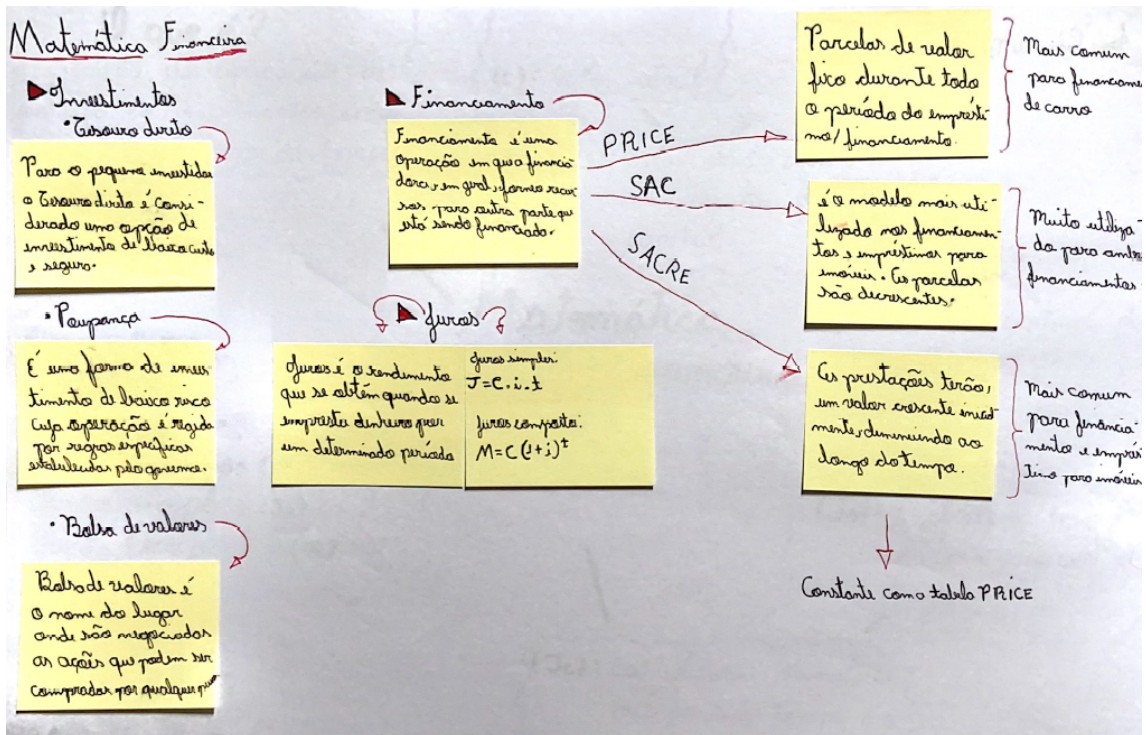 Matemática Financeira
Investimentos
• Tesouro direto
Para o pequeno investidor
o Tesouro direto é consi-
derado uma opção de
investimento de baixo custo
e seguro.
• Poupança
É uma forma de inves
timento de baixo risco
cuja operação é regida
por regras específicas
estabelecidas pelo governo.
• Bolsa de valores
Bolsa de valores é
o nome do lugar
onde são negociados
as ações que podem ser
compradas por qualquer
Financiamento
Financiamento é uma
operação em que a financia
dora, em geral, fornece recur
sos para outra parte que
está sendo financiado.
Juros
Juros é o rendimento
que se obtém quando se
empresta dinheiro por
um determinado período
Juros simples:
J=C.i.t
Juros composto:
M=C(1+i)^t
PRICE
Parcelas de valor
fixo durante todo
o período do emprésti
mo/financiamento.
Mais comum
para financiame
de carro
SAC
é o modelo mais uti-
lizado nos financiamen-
tos e empréstimos para
imóveis. As parcelas
são decrescentes.
Muito utiliza-
do para
financiamentos
SACRE
As prestações terão,
um valor crescente inicial
mente, diminuindo ao
longo do tempo.
Mais comum
para financia-
mento e emprés
timo para imóveis
Constante como tabela PRICE